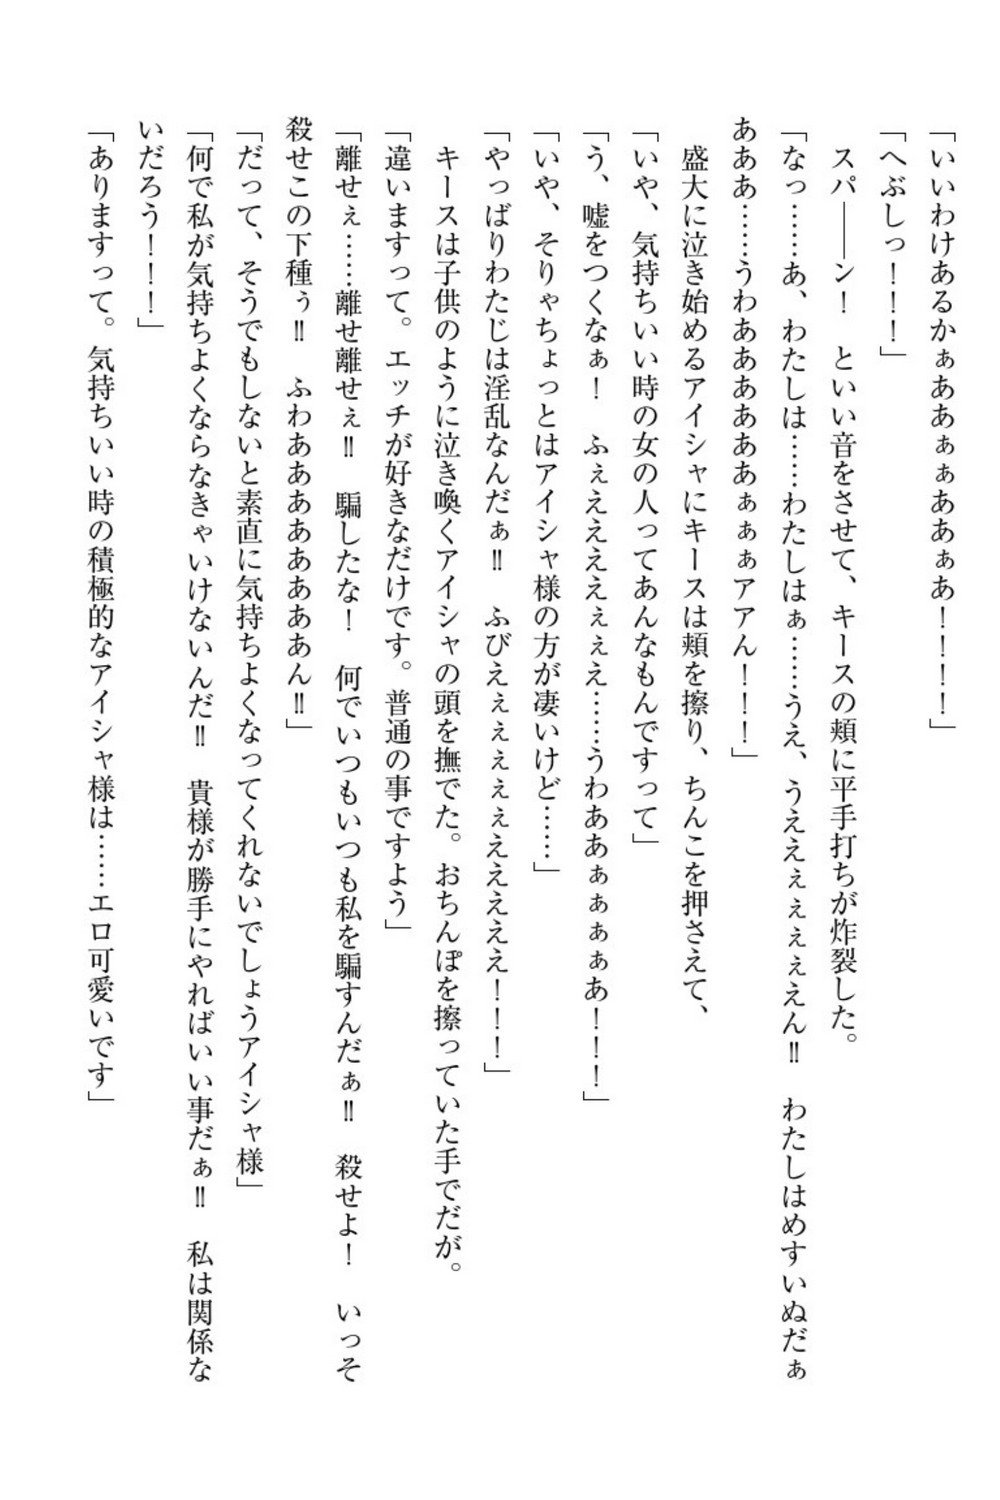 「いいわけあるかぁああぁぁああぁあ！！！！」
「へぶしっ！！！」
　スパ――ン！　といい音をさせて、キースの頬に平手打ちが炸裂した。
「なっ……あ、わたしは……わたしはぁ……うえ、うえええぇぇぇえん‼　わたしはめすいぬだぁ
あああ……うわああああああぁぁぁアアん！！！」
　盛大に泣き始めるアイシャにキースは頬を擦り、ちんこを押さえて、
「いや、気持ちいい時の女の人ってあんなもんですって」
「う、嘘をつくなぁ！　ふぇええええぇぇえ……うわああぁぁぁぁあ！！！」
「いや、そりゃちょっとはアイシャ様の方が凄いけど……」
「やっぱりわたじは淫乱なんだぁ‼　ふびえぇぇぇぇえええええ！！！」
　キースは子供のように泣き喚くアイシャの頭を撫でた。おちんぽを擦っていた手でだが。
「違いますって。エッチが好きなだけです。普通の事ですよう」
「離せぇ……離せ離せぇ‼　騙したな！　何でいつもいつも私を騙すんだぁ‼　殺せよ！　いっそ
殺せこの下種ぅ‼　ふわああああああああん‼」
「だって、そうでもしないと素直に気持ちよくなってくれないでしょうアイシャ様」
「何で私が気持ちよくならなきゃいけないんだ‼　貴様が勝手にやればいい事だぁ‼　私は関係な
いだろう！！！」
「ありますって。気持ちいい時の積極的なアイシャ様は……エロ可愛いです」